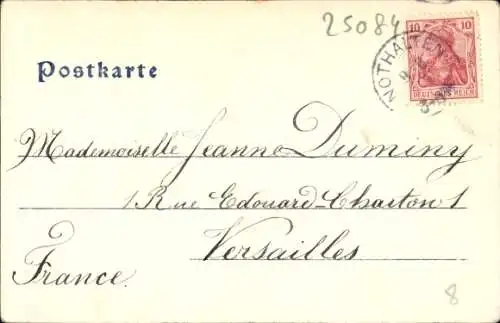 25084
10 10
NOTHALTEN
DEUTSCHES REICH
Postkarte
Mademoiselle Jeanne Duminy
1 Rue Edouard-Charton 1
Versailles
France.
8